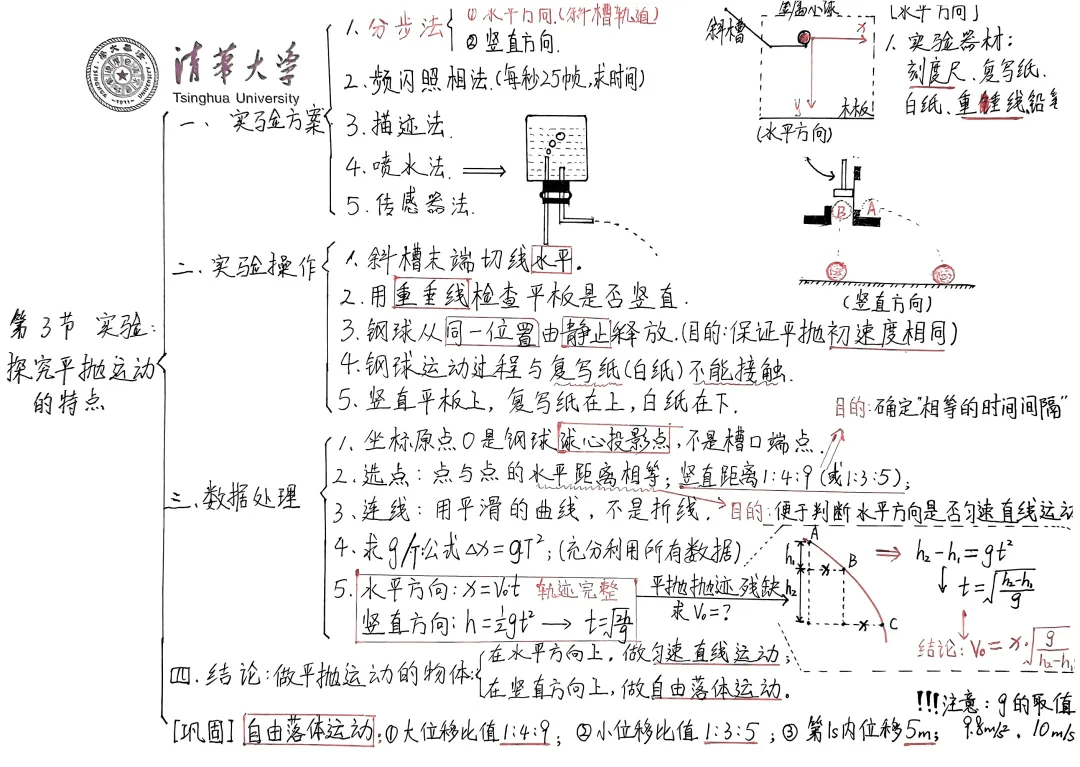 清华大学
Tsinghua University
第3节 实验:
探究平抛运动
的特点
一、实验方案
1. 分步法
① 水平方向.(斜槽轨道)
② 竖直方向.
2. 频闪照相法.(每秒25帧,求时间)
3. 描迹法.
4. 喷水法.
5. 传感器法.
斜槽
x
y
木板
(水平方向)
[水平方向]
1. 实验器材:
刻度尺、复写纸.
白纸、重锤线
B A
(竖直方向)
二、实验操作
1. 斜槽末端切线水平.
2. 用重垂线检查平板是否竖直.
3. 钢球从同一位置由静止释放.(目的:保证平抛初速度相同)
4. 钢球运动过程与复写纸(白纸)不能接触.
5. 竖直平板上,复写纸在上,白纸在下.
目的:确定"相等的时间间隔"
三、数据处理
1. 坐标原点O是钢球球心投影点,不是槽口端点.
2. 选点:点与点的水平距离相等;竖直距离1:4:9(或1:3:5);
3. 连线:用平滑的曲线,不是折线.
目的:便于判断水平方向是否匀速直线运动
4. 求g/T:公式Δx=gT²;(充分利用所有数据)
5. 水平方向:x=V₀t 轨迹完整
竖直方向:h=½gt² → t=√(2h/g)
平抛轨迹残缺
求V₀=?
A
h₁
x B
h₂
x C
h₂-h₁=gt²
t=√((h₂-h₁)/g)
结论:V₀=x·√(g/(h₂-h₁))
四、结论:做平抛运动的物体:
在水平方向上,做匀速直线运动;
在竖直方向上,做自由落体运动.
!!!注意:g的取值
9.8m/s²、10m/s
[巩固]自由落体运动:①大位移比值1:4:9;②小位移比值1:3:5;③第1s内位移5m;